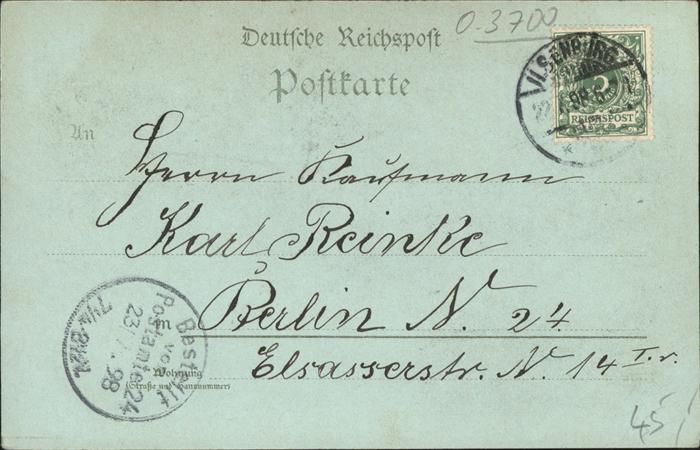 O-3700
Deutsche Reichspost
Postkarte
ILSENBURG
98
REICHSPOST
An
Herrn Kaufmann
Karl Reinke
in Berlin N. 24
Wohnung
(Straße und Hausnummer)
Elsasserstr. N. 14 I. r.
Bestellt
vom
Postamte 24
23/7.98
7¼-8½V.
45,